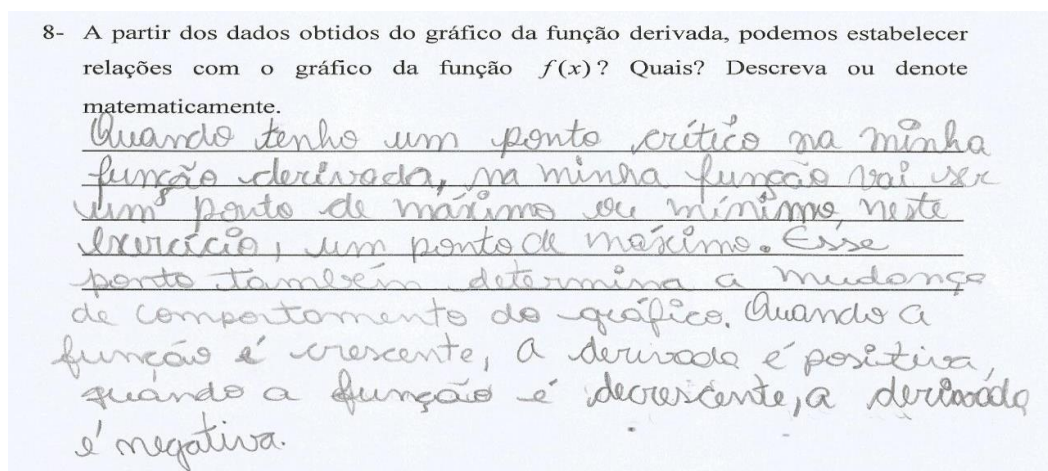 8- A partir dos dados obtidos do gráfico da função derivada, podemos estabelecer
relações com o gráfico da função f(x)? Quais? Descreva ou denote
matematicamente.
Quando tenho um ponto crítico na minha
função derivada, na minha função vai ser
um ponto de máximo ou mínimo, neste
exercício, um ponto de máximo. Esse
ponto também determina a mudança
de comportamento do gráfico. Quando a
função é crescente, a derivada é positiva,
quando a função é decrescente, a derivada
é negativa.